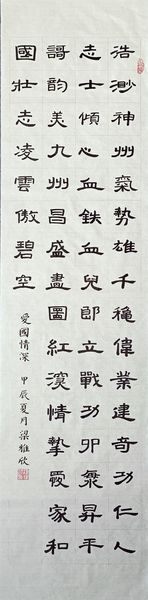 浩渺神州氣勢雄千穐偉業建奇功仁人
志士傾心血鉄血兒郎立戰功昇平
哥韵美九州昌盛畫圖紅濃情摯愛家和
國壯志凌雲傲碧空
愛國情深 甲辰夏月梁維欣